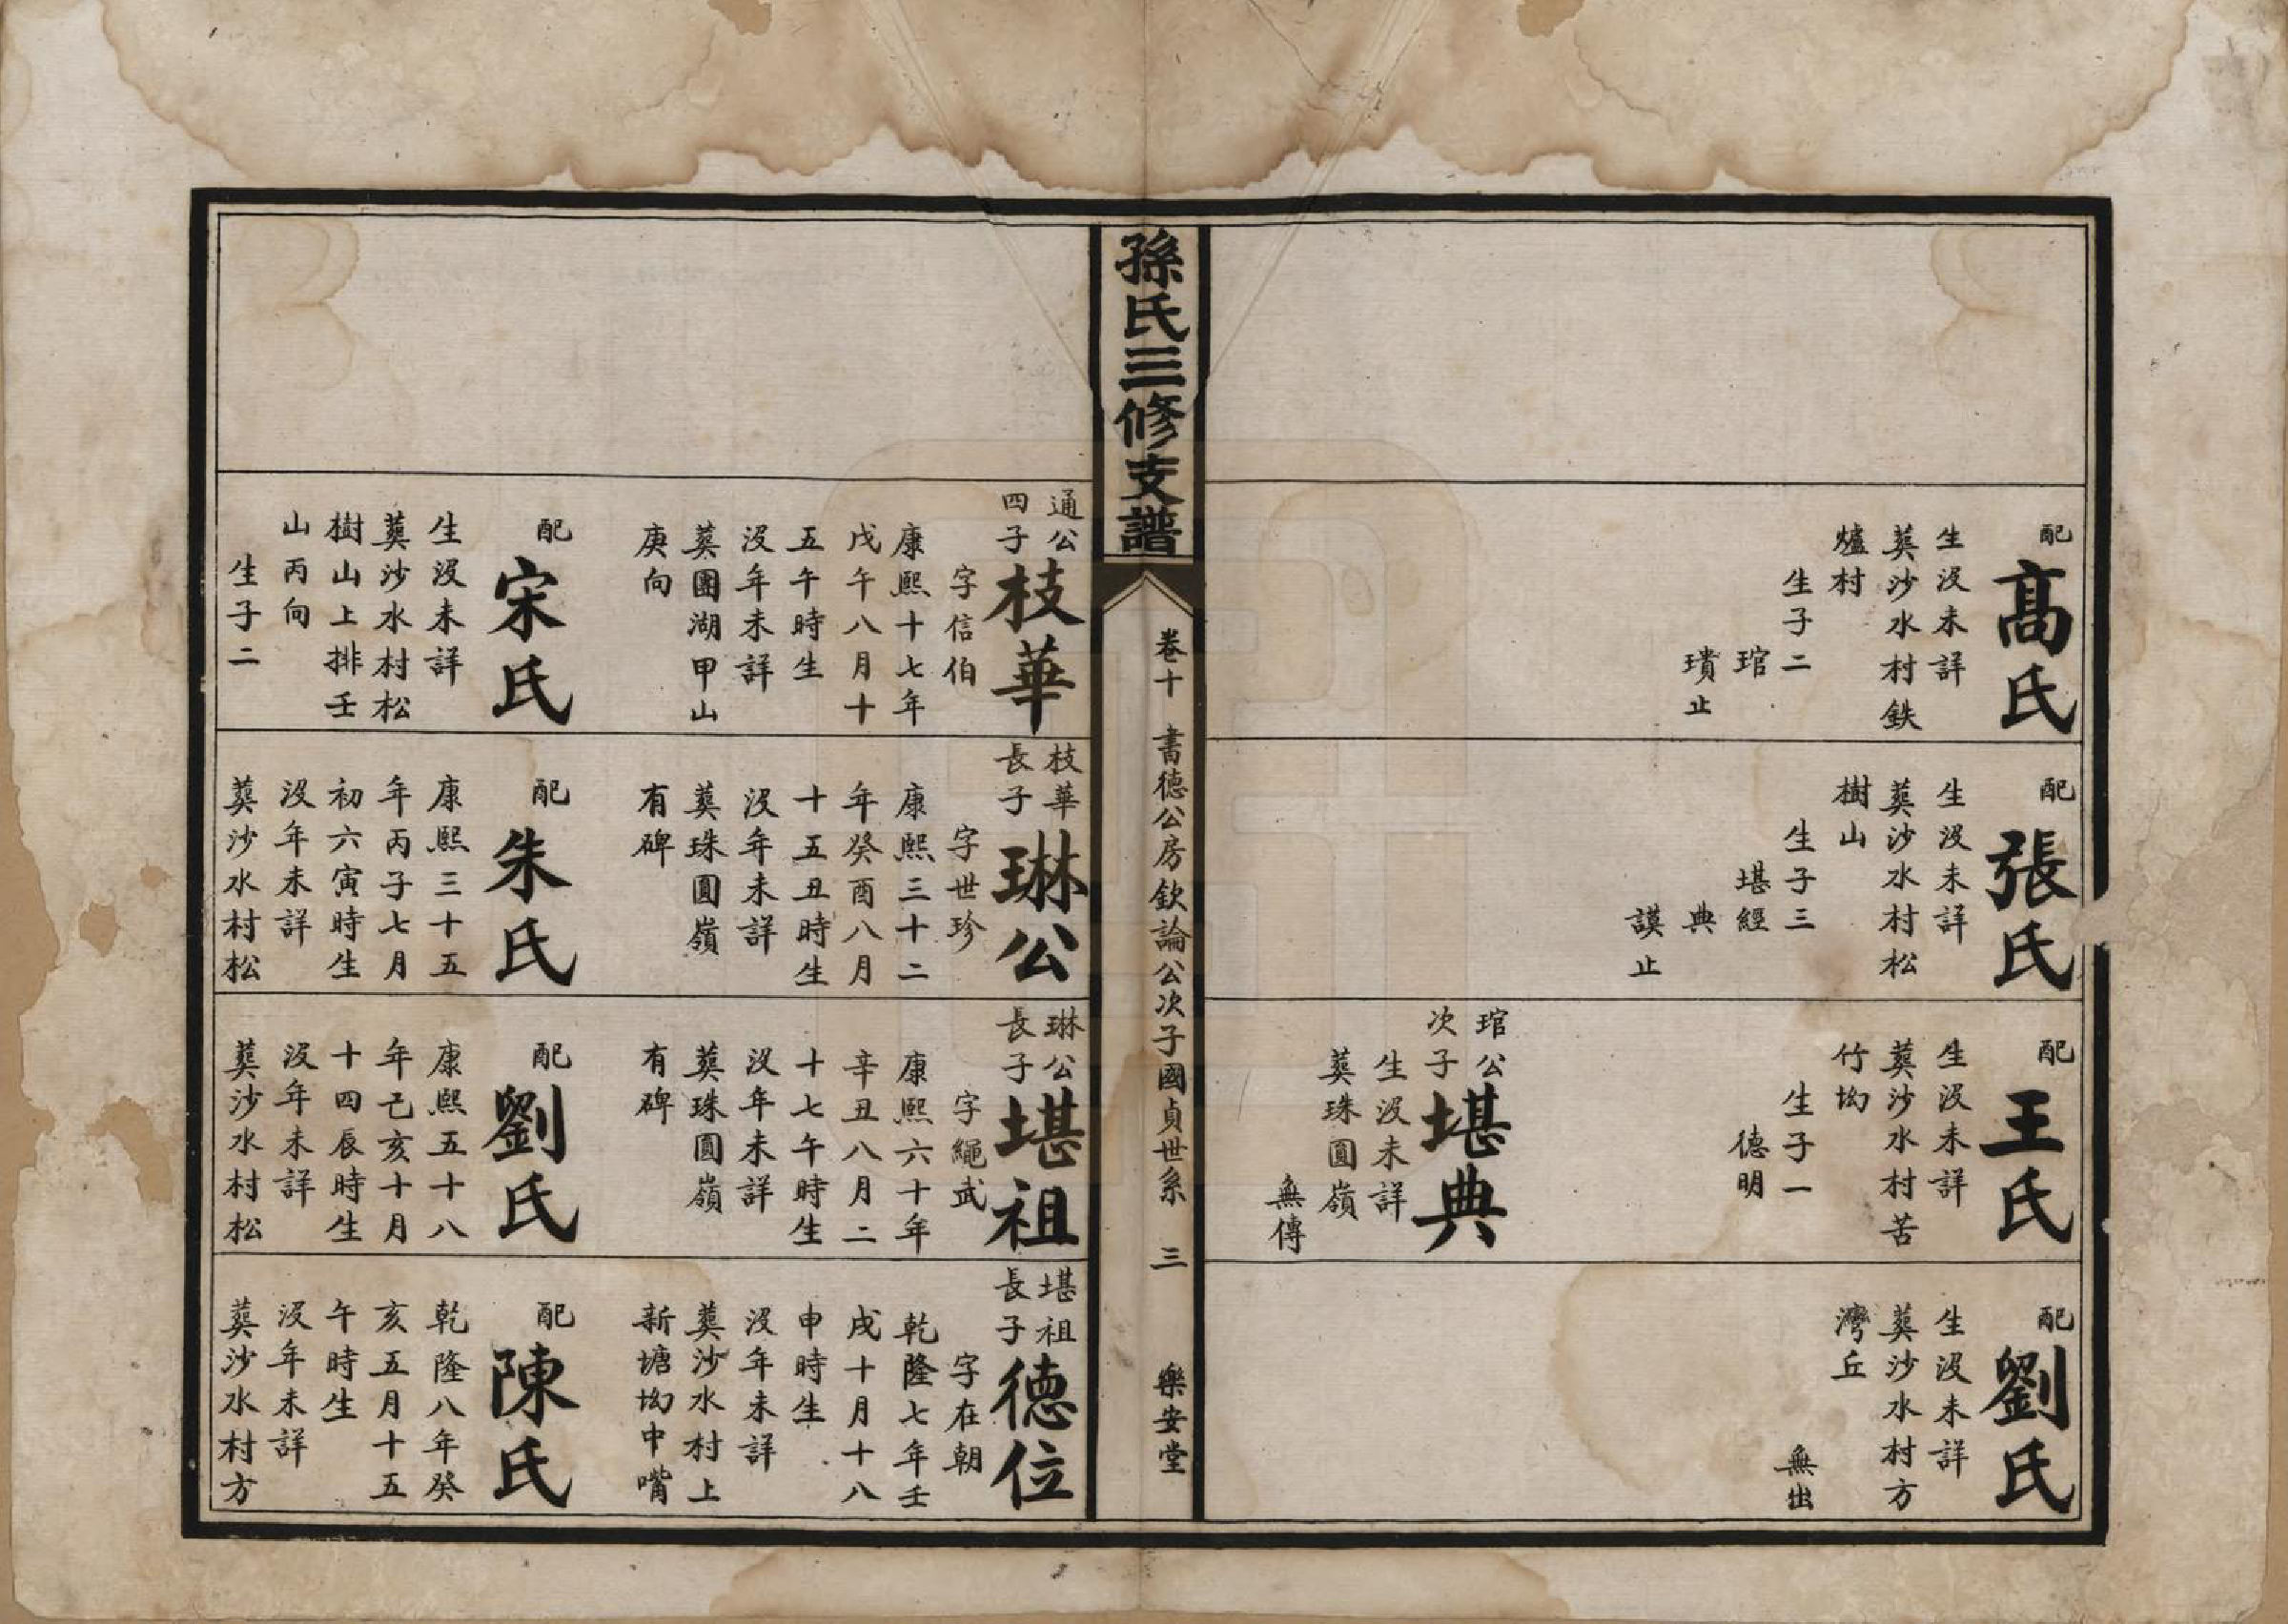 配
高氏
生沒未詳
葬沙水村鉄
爐村
生子二
琯
璝止
配
張氏
生沒未詳
葬沙水村松
樹山
生子三
堪經
典
謨止
配
王氏
生沒未詳
葬沙水村苦
竹坳
生子一
德明
琯公
次子
堪典
生沒未詳
葬珠圓嶺
無傳
配
劉氏
生沒未詳
葬沙水村方
灣丘
無出
孫氏三修支譜
卷十
書德公房欽論公次子國貞世系
三
樂安堂
通公
四子
枝華
字信伯
康熙十七年
戊午八月十
五午時生
沒年未詳
葬團湖甲山
庚向
配
宋氏
生沒未詳
葬沙水村松
樹山上排壬
山丙向
生子二
枝華
長子
琳公
字世珍
康熙三十二
年癸酉八月
十五丑時生
沒年未詳
葬珠圓嶺
有碑
配
朱氏
康熙三十五
年丙子七月
初六寅時生
沒年未詳
葬沙水村松
琳公
長子
堪祖
字繩武
康熙六十年
辛丑八月二
十七午時生
沒年未詳
葬珠圓嶺
有碑
配
劉氏
康熙五十八
年己亥十月
十四辰時生
沒年未詳
葬沙水村松
堪祖
長子
德位
字在朝
乾隆七年壬
戌十月十八
申時生
沒年未詳
葬沙水村上
新塘坳中嘴
配
陳氏
乾隆八年癸
亥五月十五
午時生
沒年未詳
葬沙水村方